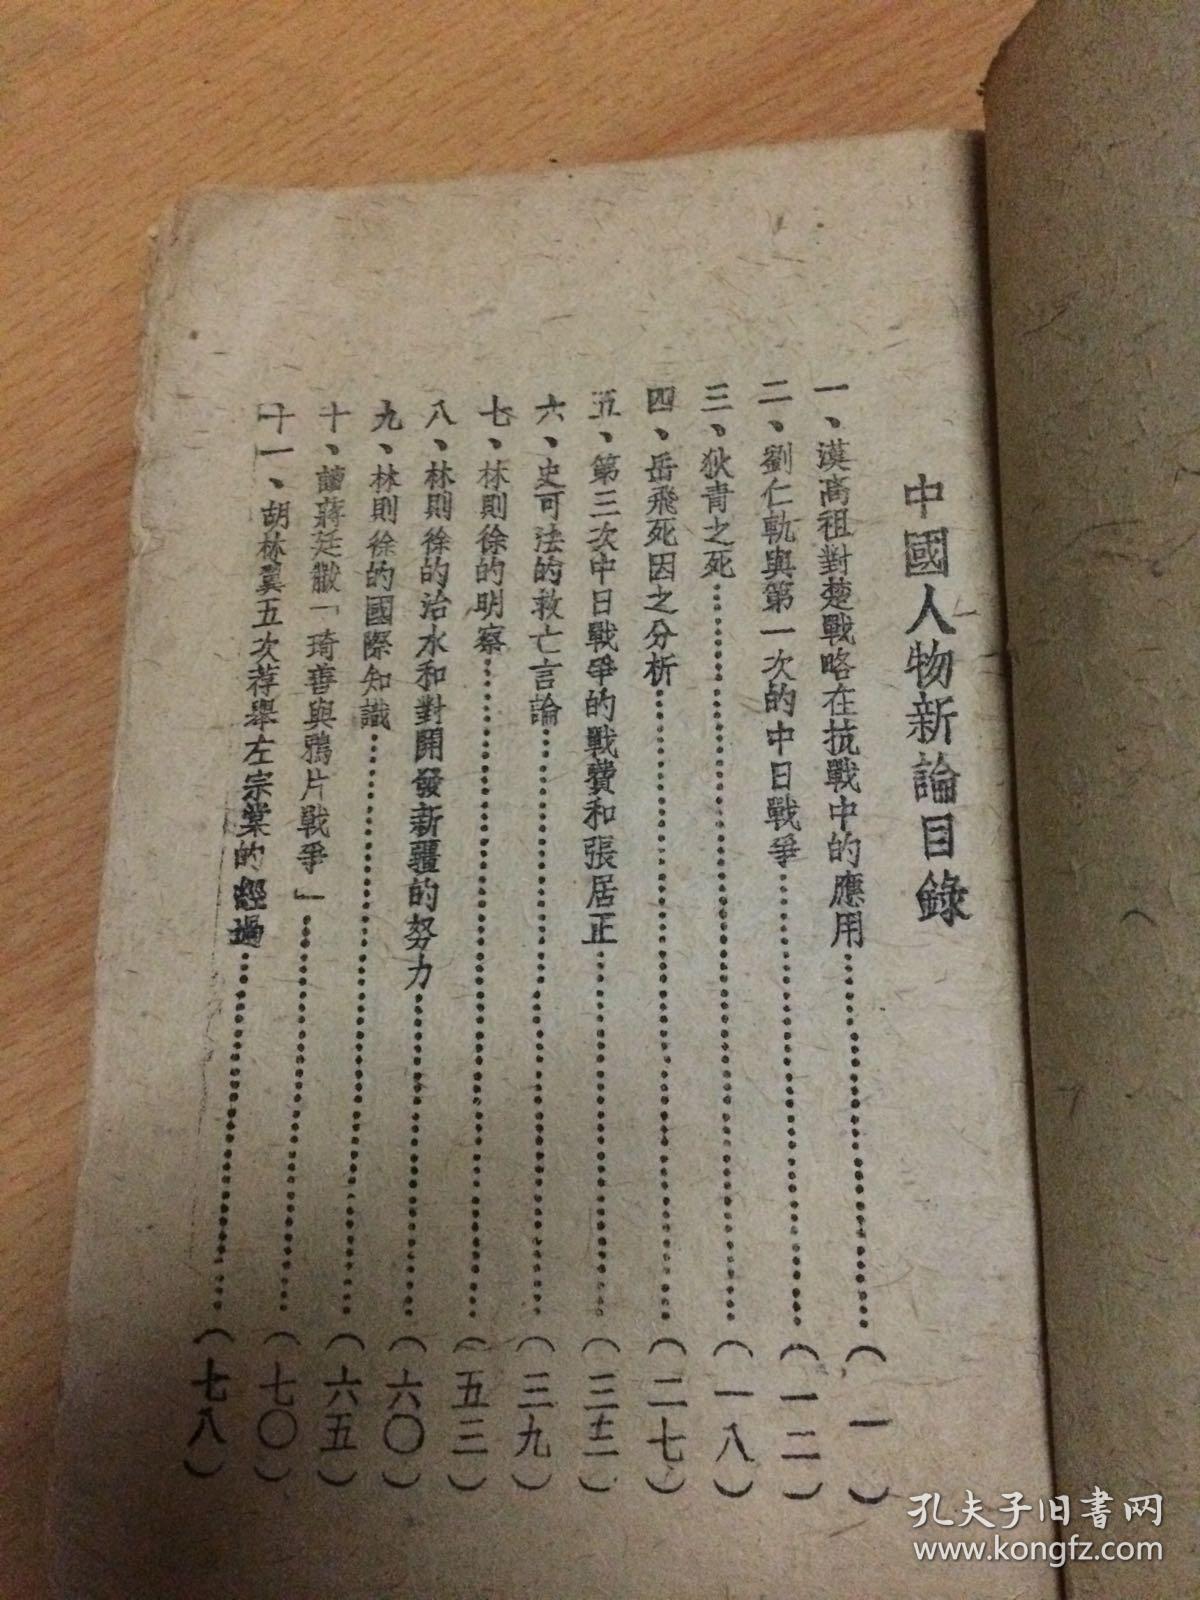 中國人物新論目錄
一、漢高祖對楚戰略在抗戰中的應用……（一）
二、劉仁軌與第一次的中日戰爭……（一二）
三、狄青之死……（一八）
四、岳飛死因之分析……（二七）
五、第三次中日戰爭的戰費和張居正……（三二）
六、史可法的救亡言論……（三九）
七、林則徐的明察……（五三）
八、林則徐的治水和對開發新疆的努力……（六〇）
九、林則徐的國際知識……（六五）
十、讀蔣廷黻「琦善與鴉片戰爭」……（七〇）
十一、胡林翼五次荐舉左宗棠的經過……（七八）
孔夫子旧書网
www.kongfz.com